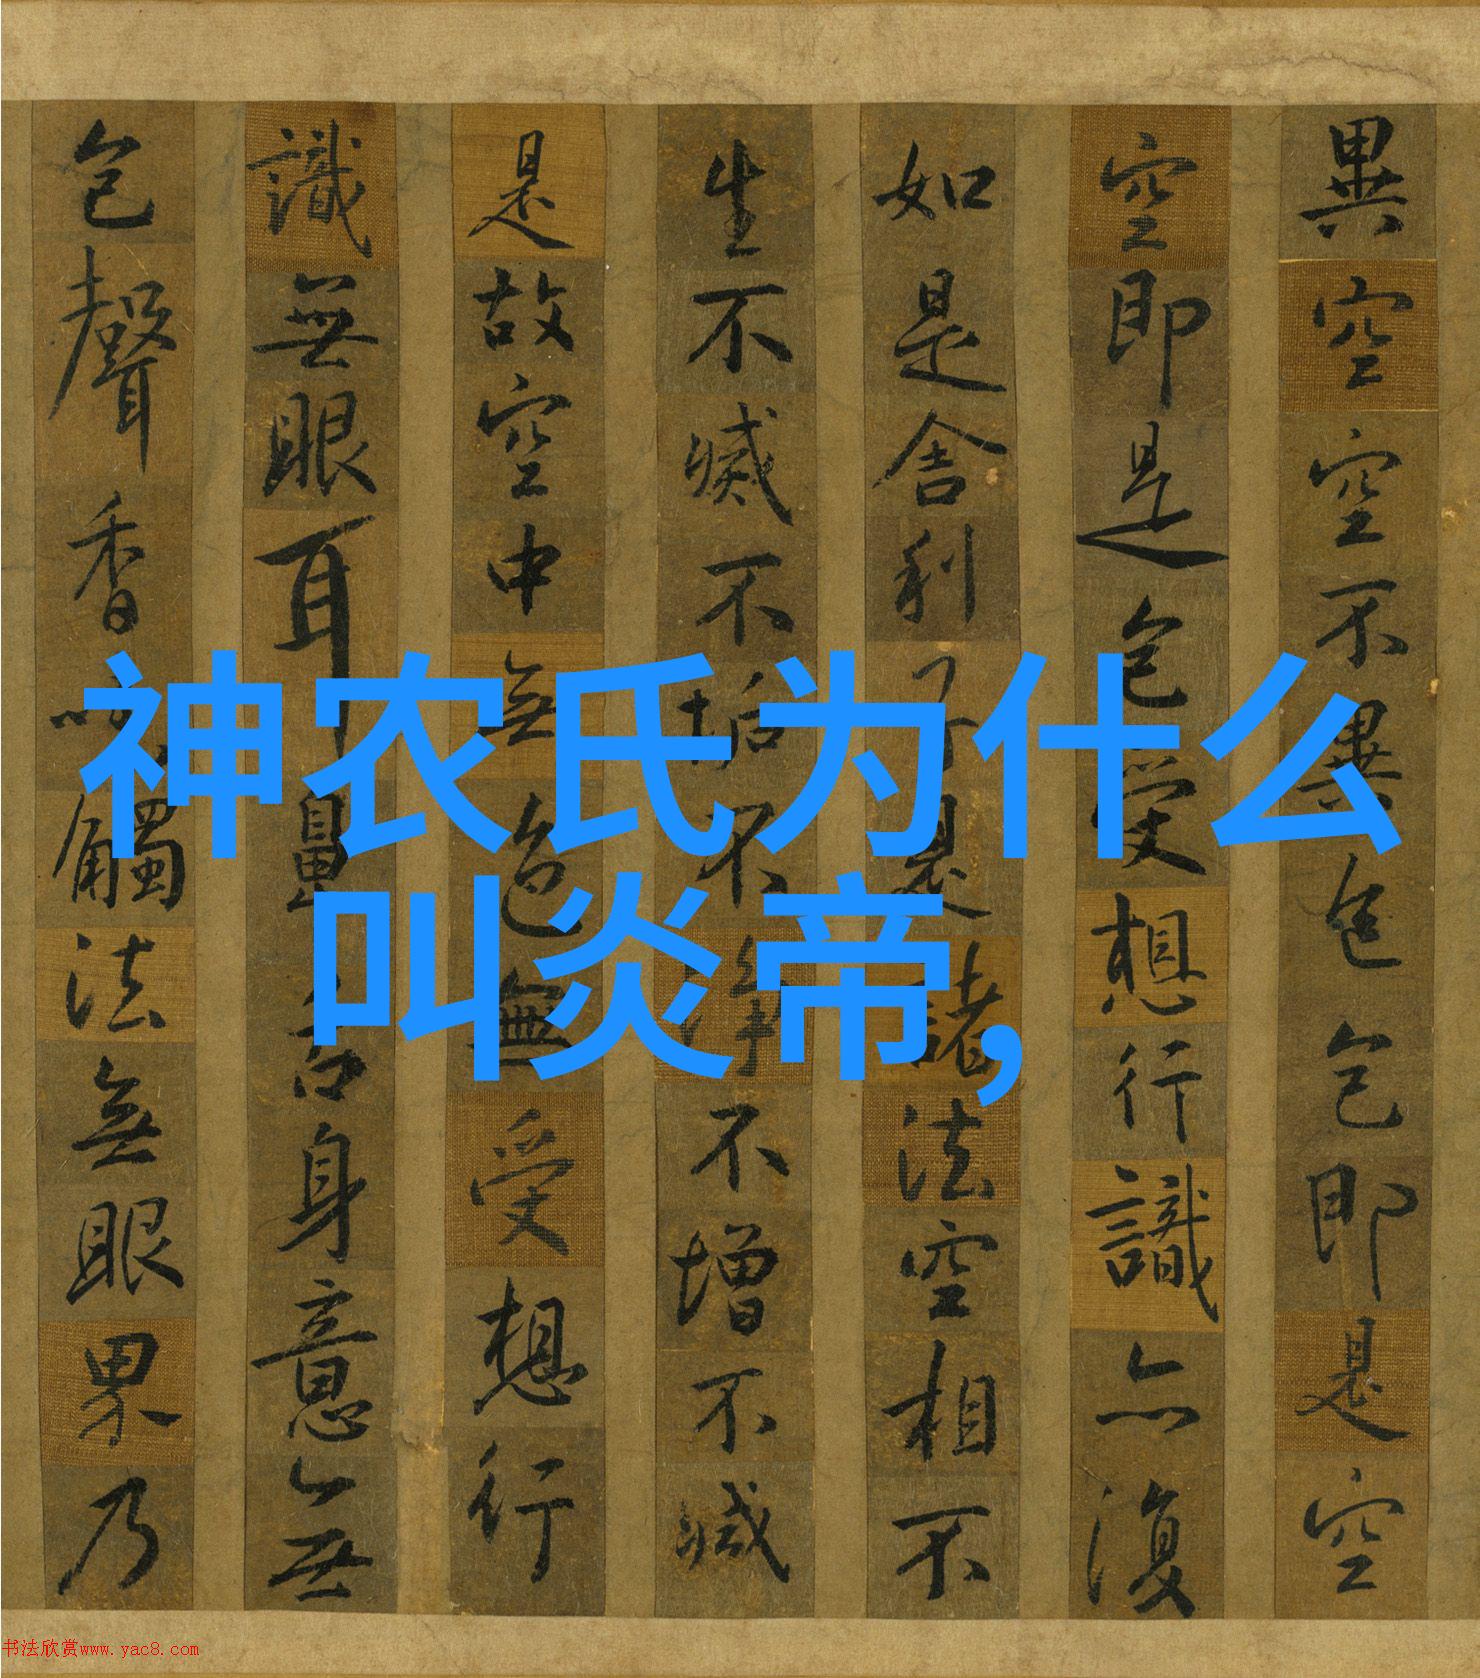 神农氏为什么
叫炎帝,
異空空不異色色即是空
空即是色受想行識亦復
如是舍利子是諸法空相不
生不滅不垢不淨不增不減
是故空中無色無受想行
識無眼耳鼻舌身意無
色聲香味觸法無眼界乃
书法欣赏www.yac8.com